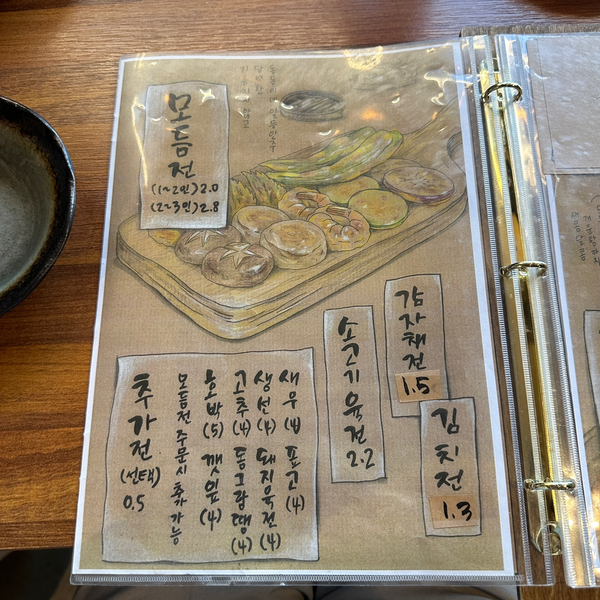 모듬전
(1~2인) 2.0
(2~3인) 2.8
감자채전
1.5
소고기육전
2.2
김치전
1.3
추가전
(선택)
0.5
모듬전 주문시 추가 가능
호박(5) 깻잎(4)
고추(4) 동그랑땡(4)
생선(4) 돼지육전(4)
새우(4) 표고(4)